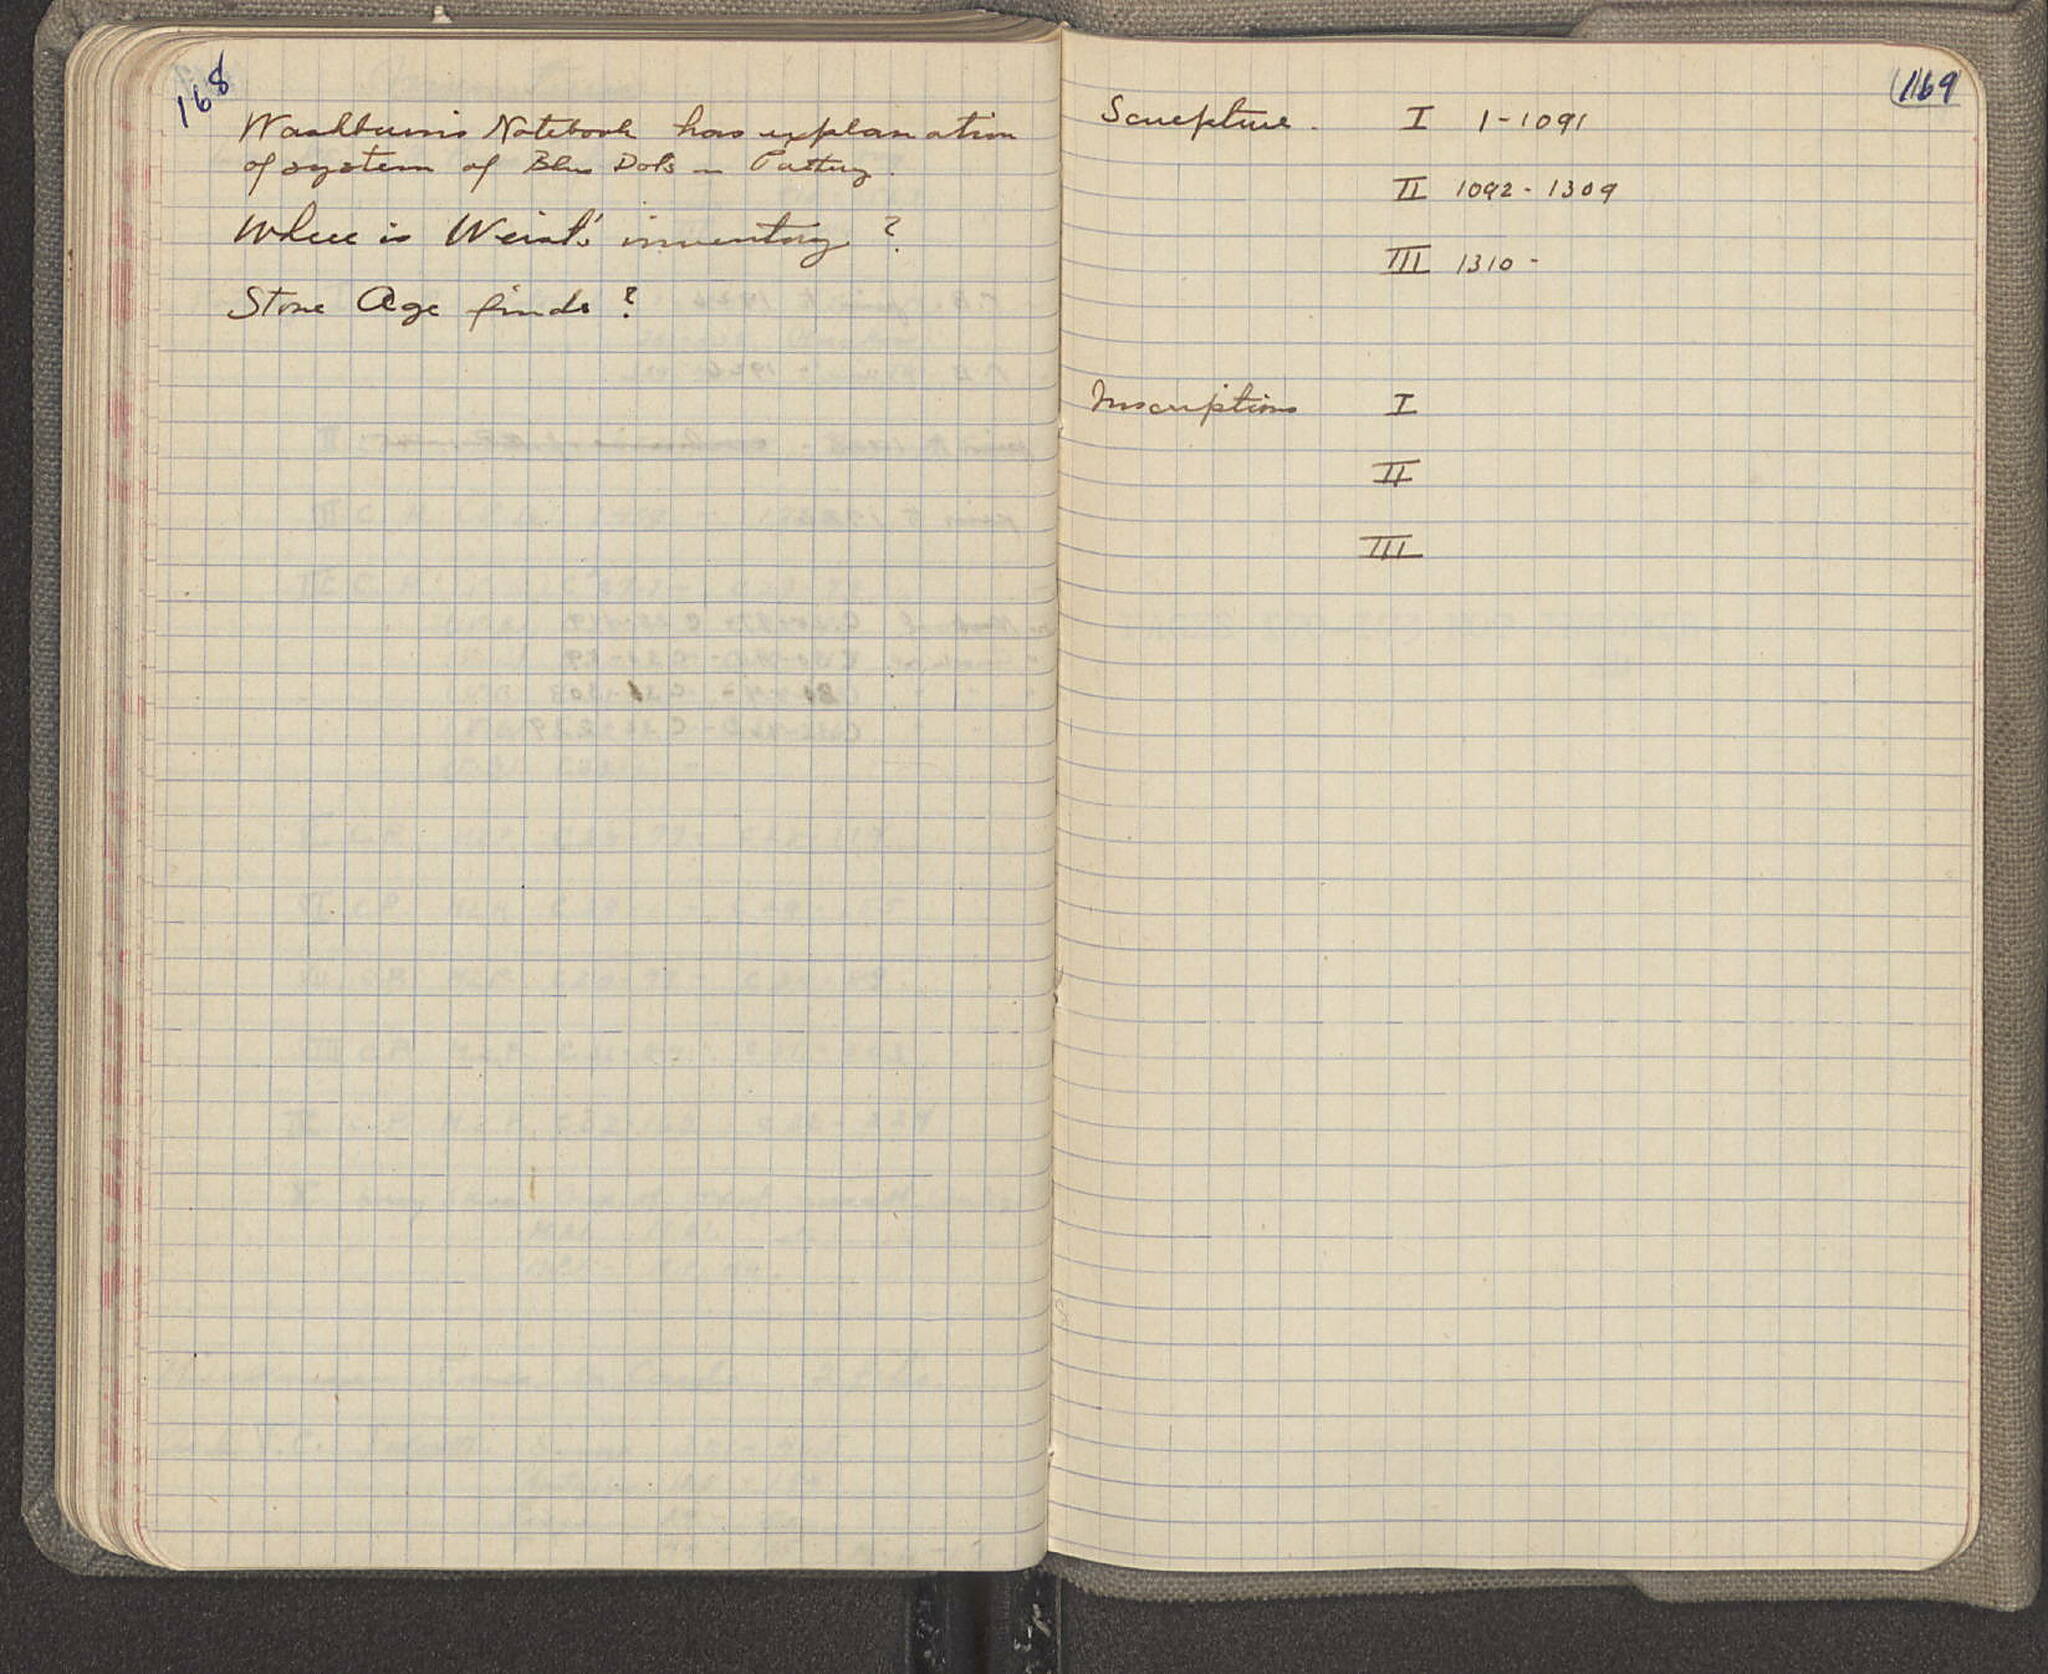 168
Washburn's Notebook has explanation
of system of Blue Dots on Pottery.
Where is Weist's inventory?
Stone Age finds?
169
Sculpture. I 1-1091
II 1092-1309
III 1310-
Inscriptions I
II
III